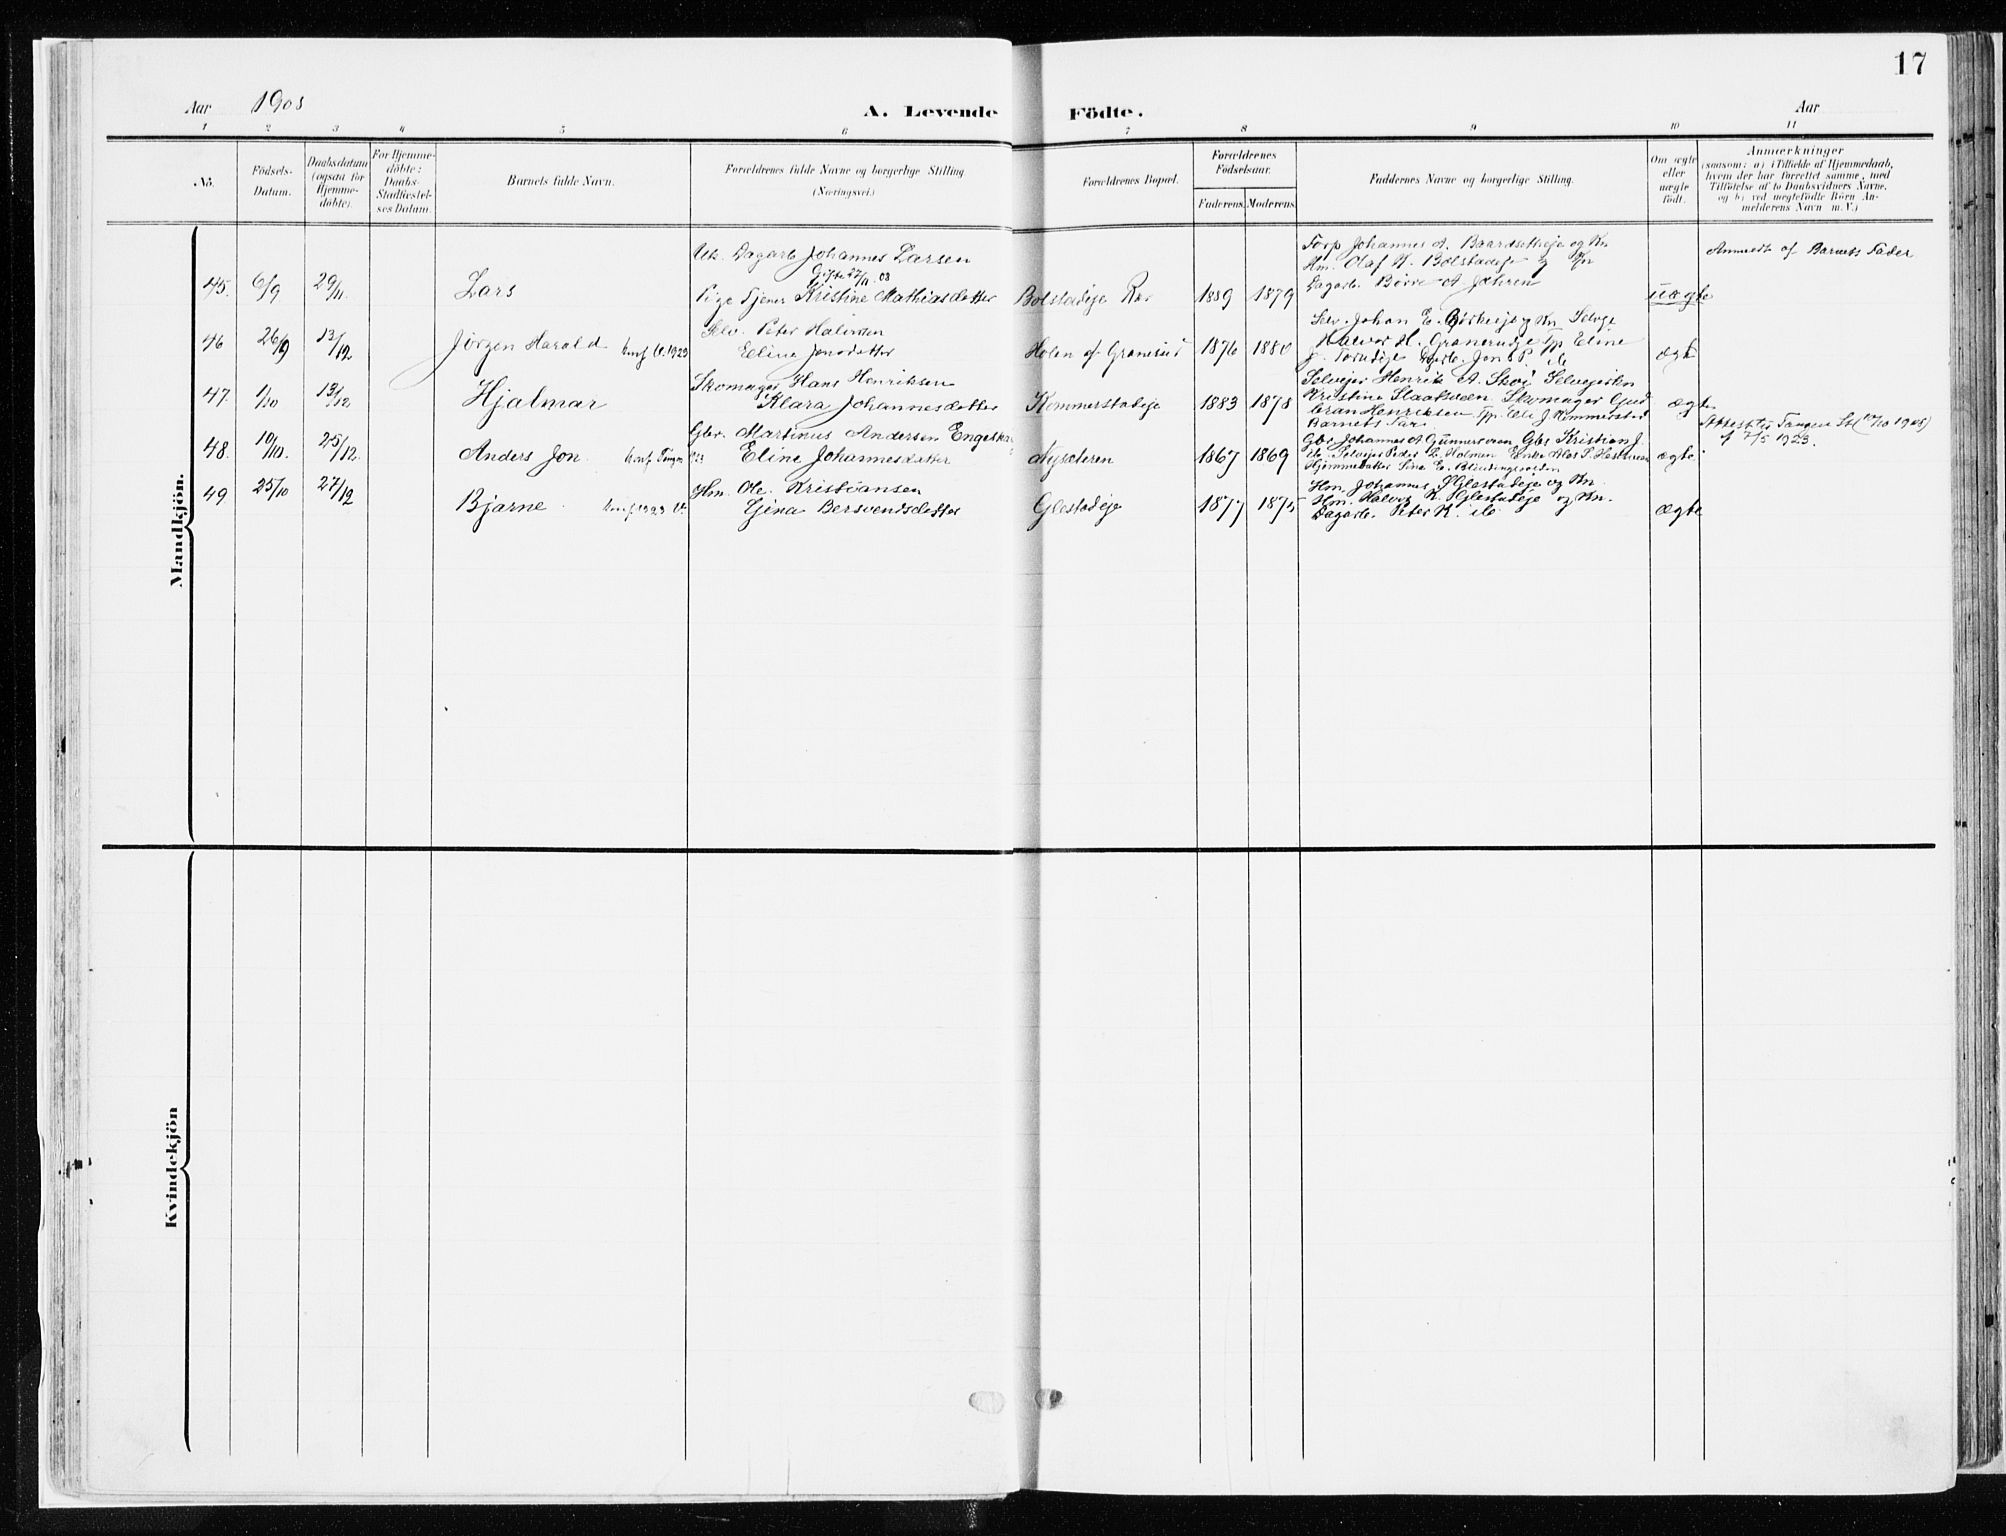 17
Aar 1908 A. Levende Födte. Aar
1 2 3 4 5 6 7 8 9 10 11
No.
Födsels-Datum.
Daabsdatum (ogsaa for Hjemme-döbte).
For Hjemme-döbte: Daabs-Stadfæstel-ses Datum.
Barnets fulde Navn.
Forældrenes fulde Navne og borgerlige Stilling (Næringsvei.)
Forældrenes Bopæl.
Forældrenes Födselsaar.
Faderens. Moderens.
Faddernes Navne og borgerlige Stilling.
Om ægte eller uægte födt.
Anmærkninger
(saasom: a) i Tilfælde af Hjemmedaab,
hvem der har forrettet samme, med
Tilföielse af to Daabsvidners Navne,
og b) ved uægtefödte Börn An-
melderens Navn m. V.)
Mandkjön.
Dagarb. Johannes Larsen
Gifte 27/11 08
45. 6/9 29/11 Lars Pige Tjener Kristine Mathiasdatter Bolstadeje Ro 1889 1879 uægte
Torp. Johannes A. Baardsetheje og Kn
Hm. Olaf K. Bolstadeje og Kn
Dagarb. Børre A Jahren
Anmeldt af Barnets Fader
46 26/9 13/12 Jørgen Harald konf. 1923
Selv. Peter Halvorsen
Eline Jonsdatter
Holen af Granerud 1876 1880
Selv. Johan E.
Halvor H. Granerudje Tp Eline
ægte
47. 1/10 13/12 Hjalmar
Skomager Hans Henriksen
Klara Johannesdatter
Kommerstadeje 1883 1878
Selvejer Henrik A. Skoi Selvejerkn
Kristine Skomager Gud
bran Henriksen Tp. J. Kommerstad
Barnets Far
ægte
48. 10/10. 25/12. Anders Jon. konf. Tangen 1923
Gbr. Martinus Andersen
Eline Johannesdatter
Nysæteren 1867 1869
Gbr. Johannes A Gunnersveen Gbr Kristian J.
do, Selvejer Peder L. Holmen Enke
Hjemmedatter
ægte
Attest til Tangen
7/5 1923.
49 25/10 27/12 Bjarne konf 1923
Hm. Ole Kristiansen
Gina Bersvendsdatter
Glestadeje 1877 1875
Hm. Johannes Glestadeje og Kn.
Hm. Halvor K. Glestadeje og Kn.
Dagarb. Peter K. do
ægte
Kvindekjön